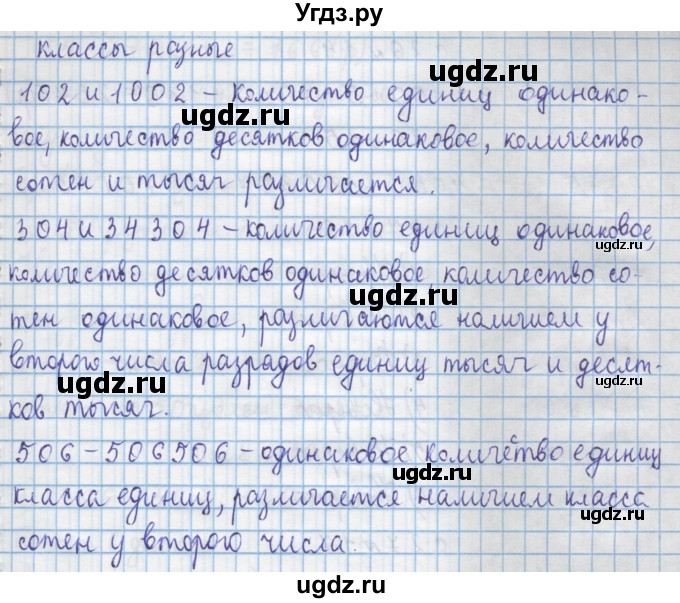 Угдз.ру
классы разные
ugdz.ru
102 и 1002 - количество единиц одинако-
ugdz.ru ugdz.ru
вое, количество десятков одинаковое, количество
сотен и тысяч различается.
ugdz.ru
304 и 34304 - количество единиц одинаковое,
ugdz.ru
количество десятков одинаковое, количество со-
ugdz.ru
тен одинаковое, различаются наличием у
второго числа разрядов единиц тысяч и десят-
ugdz.ru ugdz.ru
ков тысяч.
506-506506 - одинаковое количество единиц
ugdz.ru
класса единиц, различается наличием класса
ugdz.ru
сотен у второго числа.
ugdz.ru